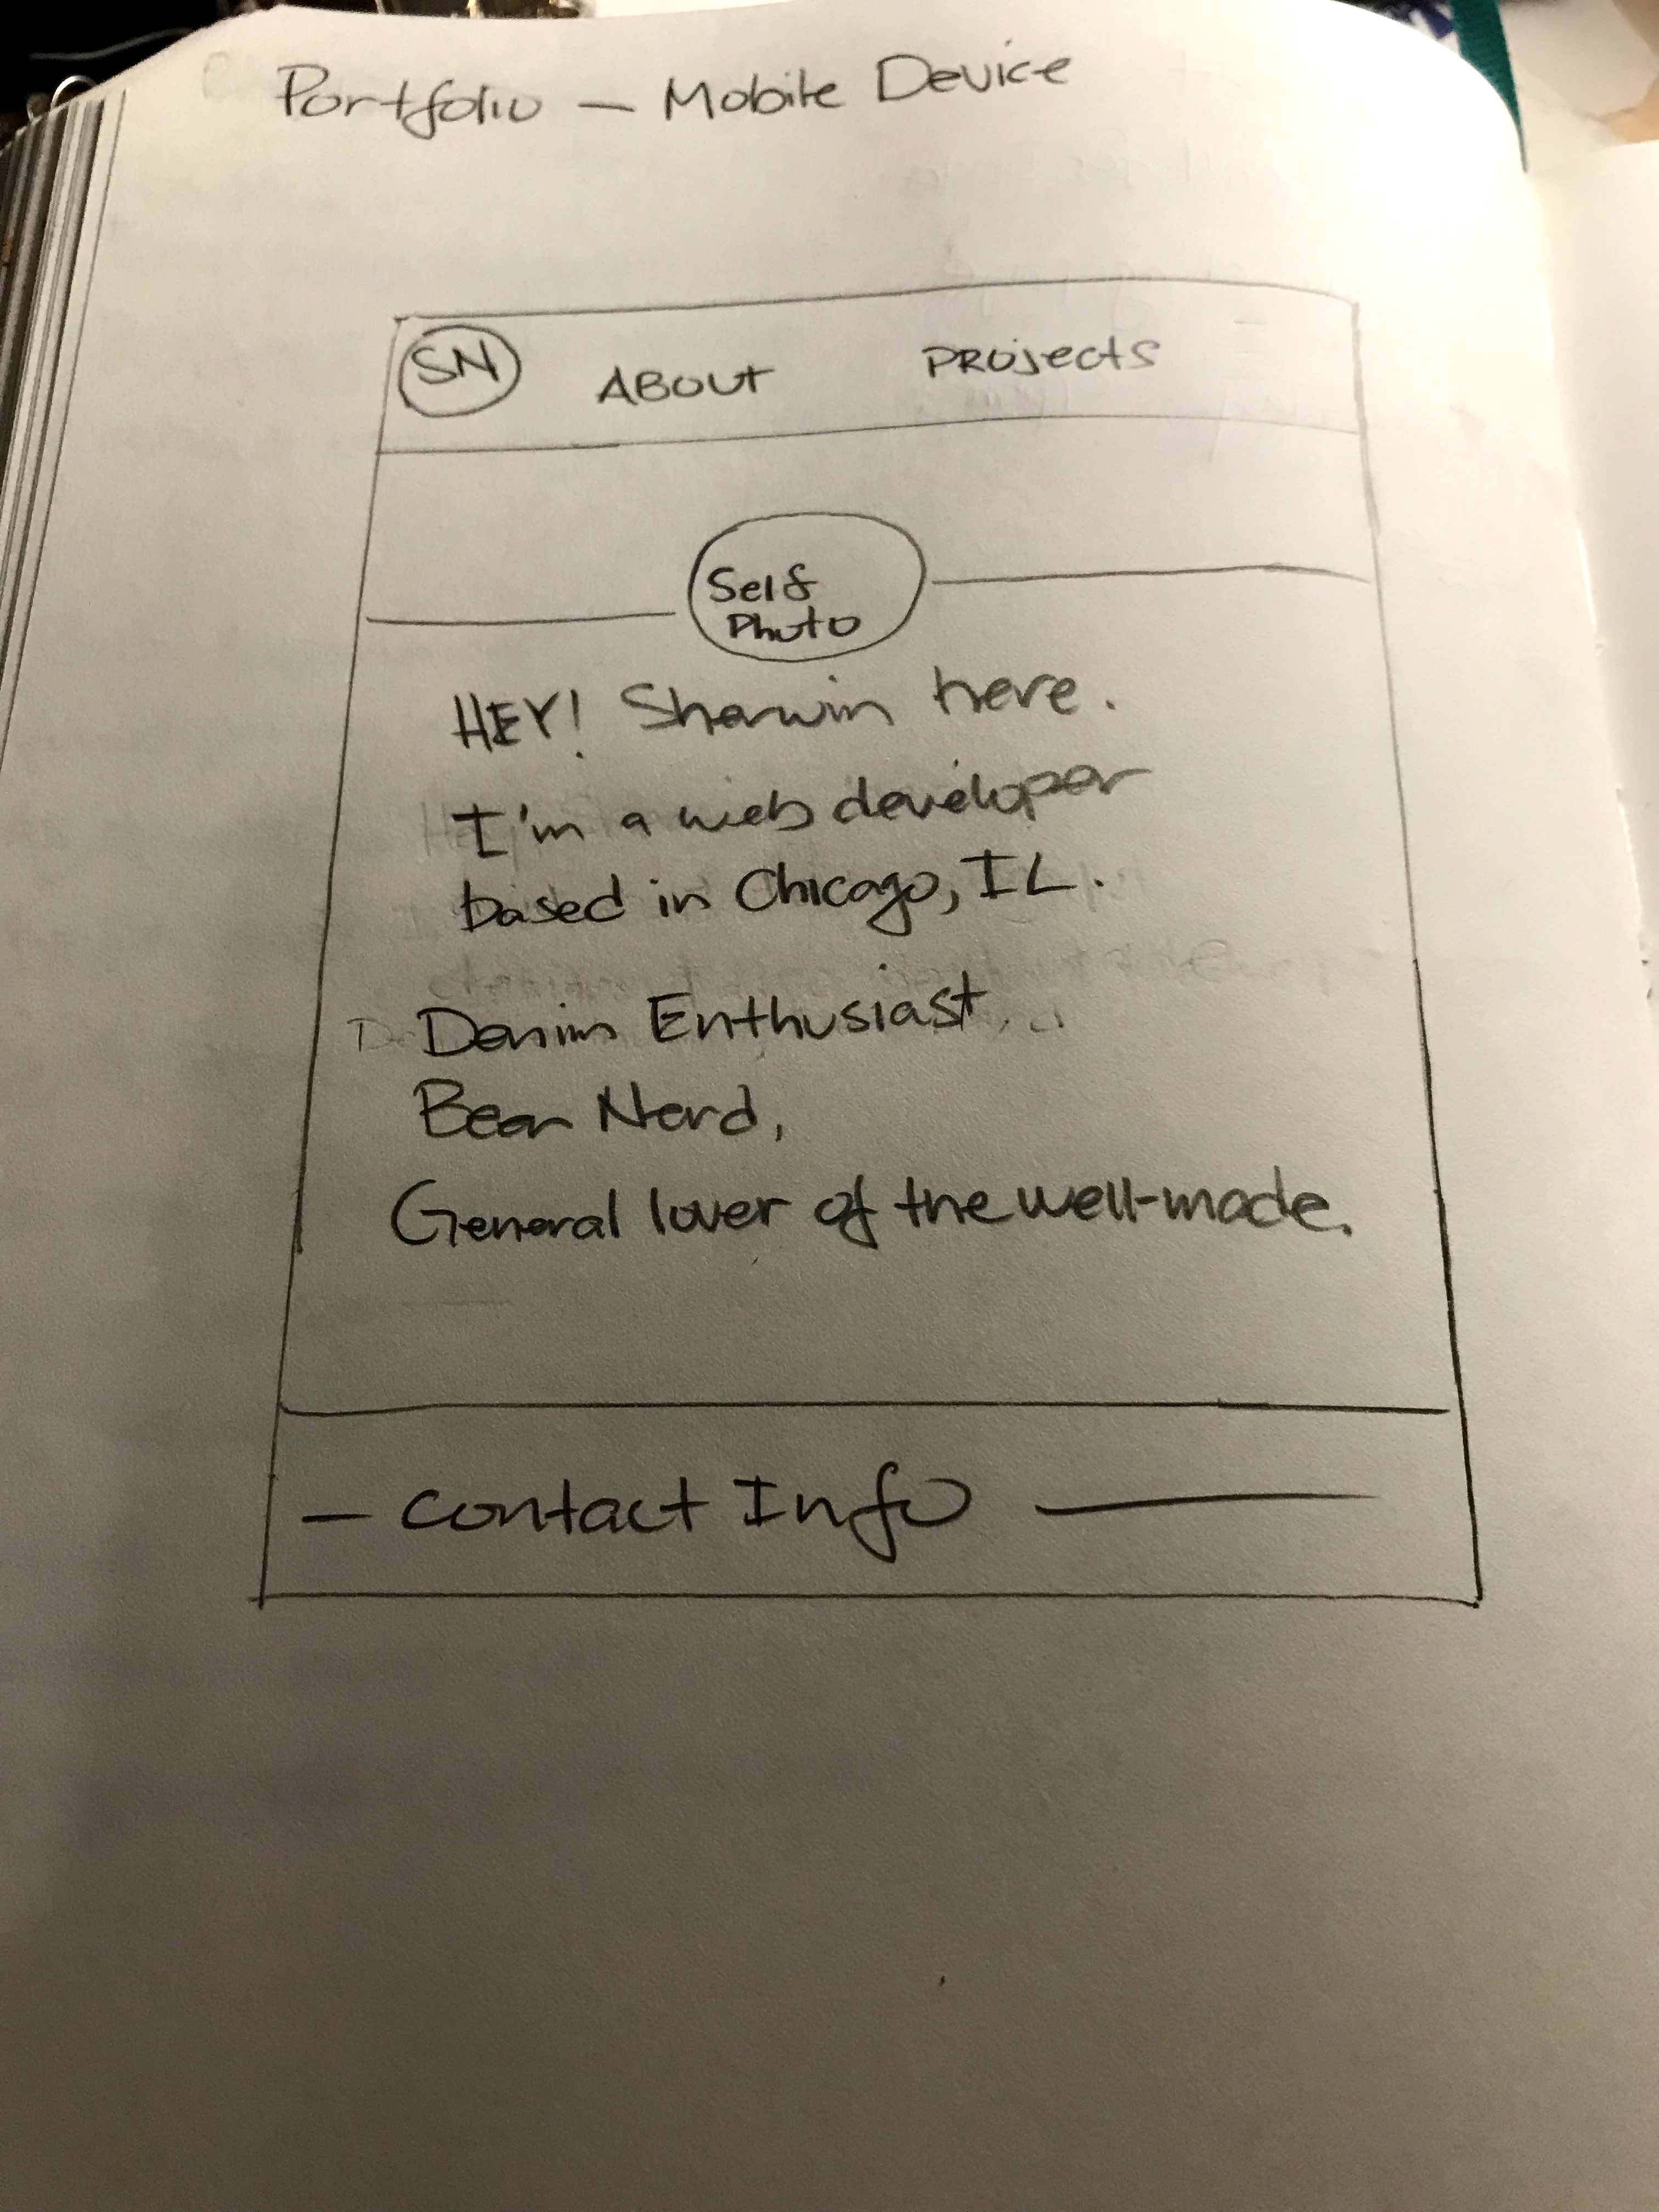 Portfolio — Mobile Device
SN ABOUT PROJECTS
Self
Photo
HEY! Sherwin here.
I'm a web developer
based in Chicago, IL.
Denim Enthusiast,
Nerd,
General lover of the well-made.
— Contact Info —